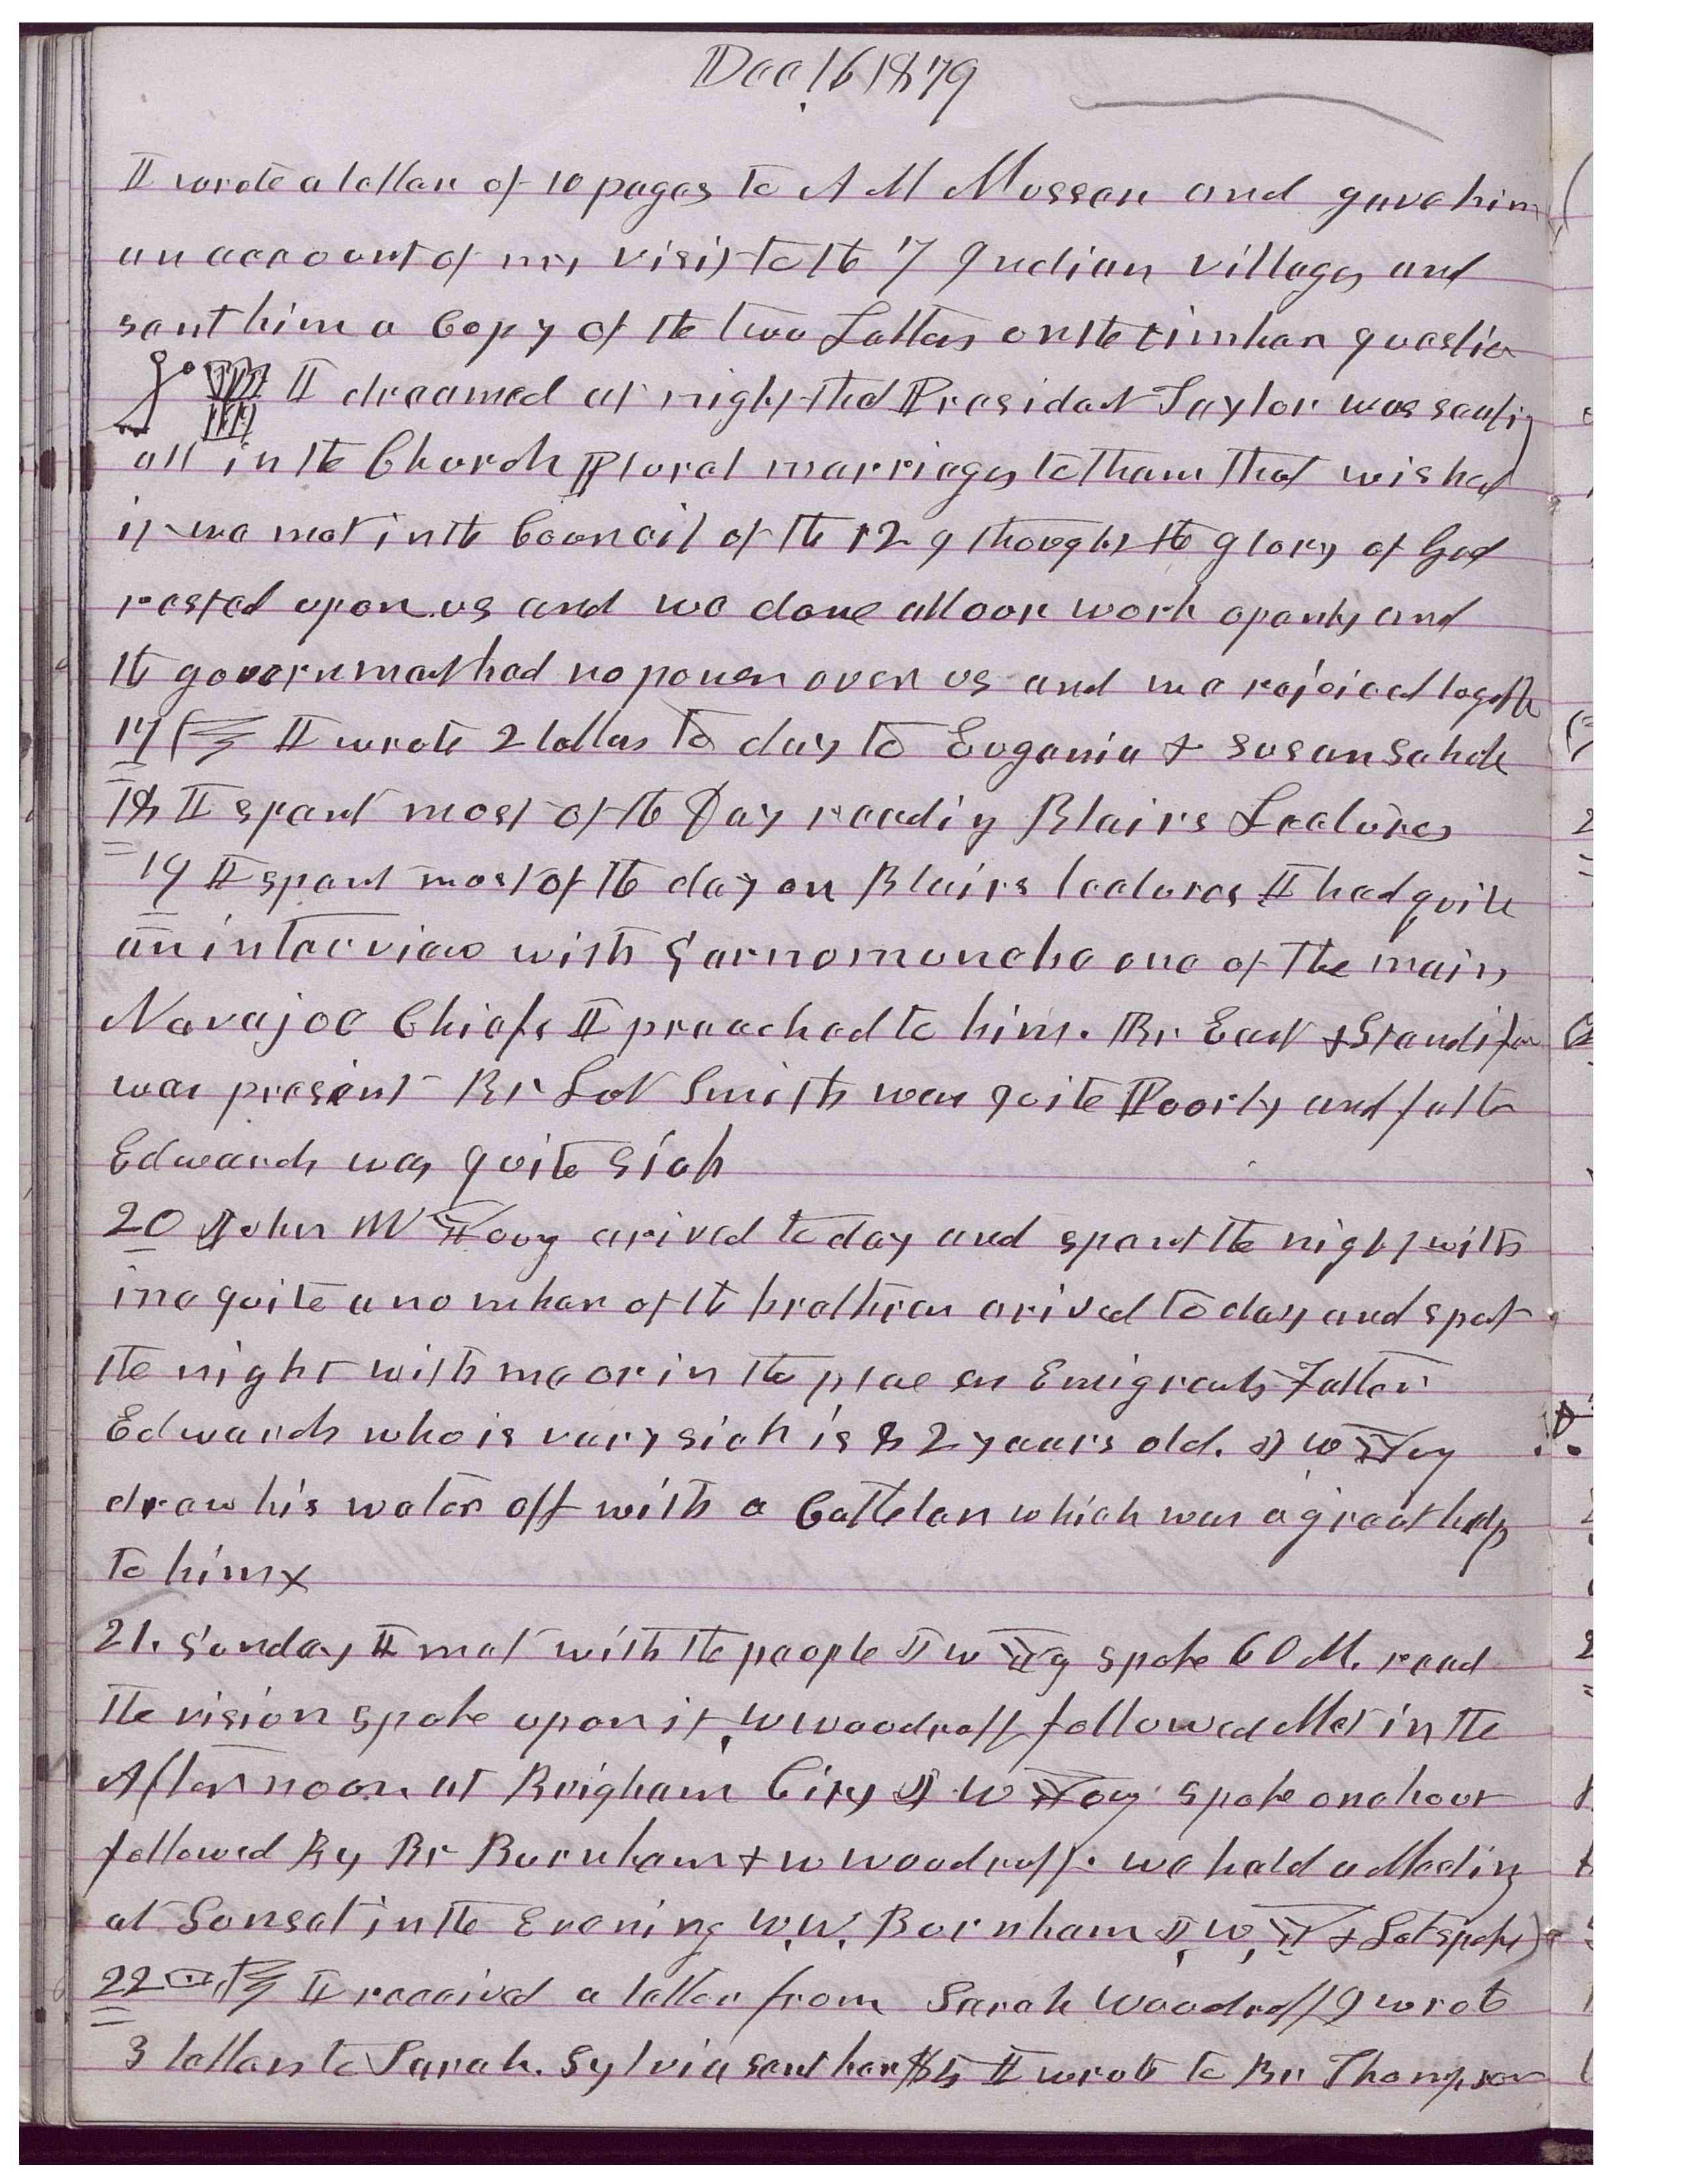 Dec 16 1879
I wrote a letter of 10 pages to A M Musser and gave him
an account of my visit to the 7 Indian villages and
sent him a Copy of the two Letters on the timber question
I dreamed at night that President Taylor was sealing
all in the Church Plural marriages to them that wished
it we met in the Council of the 12 I thought the glory of God
rested upon us and we done all our work openly and
the government had no power over us and we rejoiced together
17 I wrote 2 letters to day to Eugenia & Susan
18 I spent most of the Day reading Blairs Lectures
19 I spent most of the day on Blairs lectures I had quite
an interview with one of the main
Navajoe Chiefs I preached to him. Br East & Standifer
was present Br Lot Smith was quite Poorly and father
Edwards was quite sick
20 John W Young arived to day and spent the night with
me quite a number of the brethren arived to day and spet
the night with me or in the place en Emigrants Father
Edwards who is very sick is 82 years old. J W Yug
drew his water off with a Catteler which was a great help
to him x
21. Sunday I met with the people J W Yg spoke 60 M. read
the vision spoke upon it, W Woodruff followed Met in the
Afternoon at Brigham City J W Young spoke one hour
followed By Br Burnham & W Woodruff. we held a Meeting
at Sunset in the Evening W. W. Burnham J, W, Y & Lot spoke)
22 I received a letter from Sarah Woodruff I wrote
3 letters to Sarah. Sylvia sent her $5 I wrote to Br Thompson